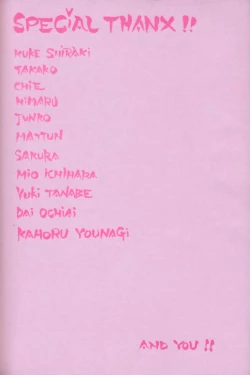 SPECIAL THANX!!
TAKAKO
CHIE
HIMARU
JUNKO
MAYTUN
SAKURA
MIO ICHIHARA
YUKI TANABE
DAI OCHIAI
KAHORU YOUNAGI
AND YOU!!